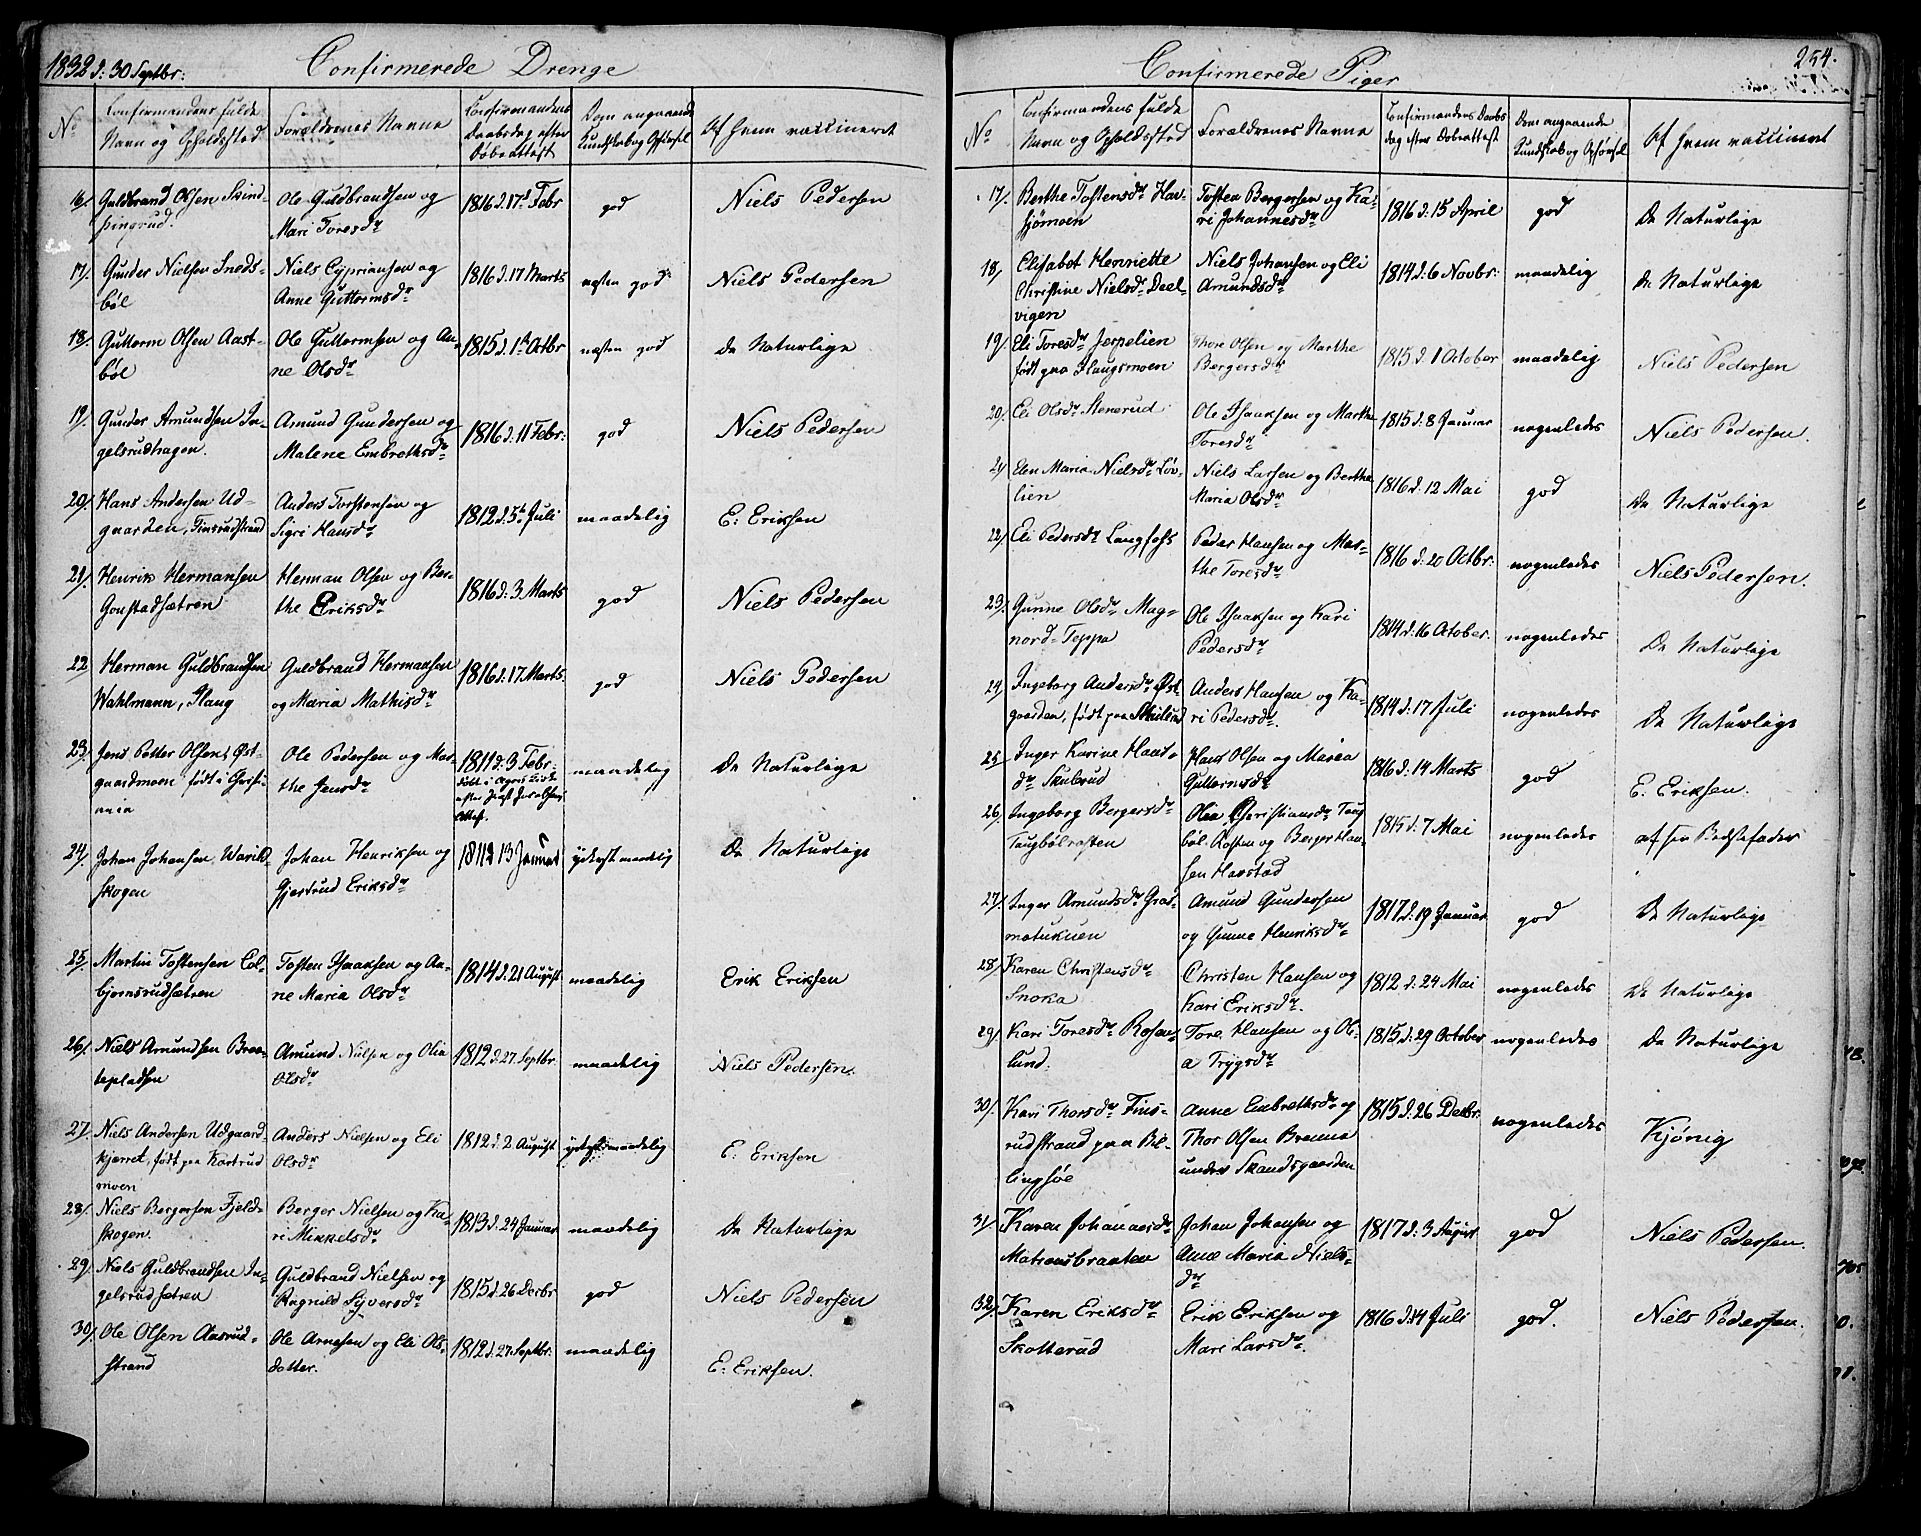 1832 d: 30 Septbr:
Confirmerede Drenge
No
Confirmandens fulde Navn og Opholdssted
Forældrenes Navne
Confirmandens Daabsdag efter Døbeattest
Dom angaaende Kundskab og Opførsel
Af hvem vaccineret
16/. Guldbrand Olsen Skind-
pingrud.
Ole Guldbrandsen og
Mari Toresdr
1816 d. 17d Febr
god
Niels Pedersen
17/. Gunder Nielsen Sneds-
bøl
Niels Cypriansen og
Anne Guttormsdr
1816 d. 17 Marts
næsten god
Niels Pedersen
18/. Guttorm Olsen Aast-
bøl
Ole Guttormsen og An-
ne Olsdr
1815 d. 1te Octbr
næsten god
De Naturlige
19/. Gunder Amundsen In-
gelsrudhagen.
Amund Gundersen og
Malene Embrethsdr
1816 d. 11 Febr:
god
Niels Pedersen
20/. Hans Andersen Ud-
gaarden, Finsrudstrand
Anders Torstensen og
Sigri Hansdr
1812 d. 5te Juli
maadelig
E: Eriksen
21/. Henrik Hermansen
Gonstadsætren
Herman Olsen og Ber-
the Eriksdr
1816 d: 3 Marts
god
Niels Pedersen
22 Herman Guldbrandsen
Wahlmann, Haug
Guldbrand Hermansen
og Maria Mathisdr
1816 d: 17 Marts.
god
Niels Pedersen
23. Jens Petter Olsen, Øst-
gaardmoen født i Christi-
ania
Ole Pedersen og Mar-
the Jensdr
1811 d: 3 Febr:
Attest.
maadelig
De Naturlige
24/. Johan Johansen Warik-
skogen
Johan Henriksen og
Gjertrud Eriksdr
13 Januar
yderst maadelig
De Naturlige
25/. Martin Tostensen Col-
bjørnsrudsætren
Tosten Isaaksen og An-
ne Maria Olsdr
1814 d. 21 August
maadelig
Erik Eriksen
26/. Niels Amundsen Braa-
tepladsen
Amund Nielsen og Olia
Olsdr
1812 d. 27 Septbr
maadelig
Niels Pedersen.
27. Niels Andersen Udgaard-
kjerret, født paa Kastrud
moen
Anders Nielsen og Eli
Olsdr
1812 d. 2 August
yderst maadelig
E: Eriksen
28/. Niels Bergersen Fjeld-
skogen.
Berger Nielsen og Ka-
ri Mikkelsdr
1813 d. 24 Januar
maadelig
De Naturlige
29. Niels Guldbrandsen In-
gelsrudsætren
Guldbrand Nielsen og
Ragnild Syversdr
1815 d. 26 Decbr
god
Niels Pedersen
30/. Ole Olsen Aasrud-
strand
Ole Arnesen og Eli Ols-
dotter.
1812 d. 27 Septbr:
maadelig
E: Eriksen.
254.
Confirmerede Piger
No
Confirmandens fulde Navn og Opholdssted
Forældrenes Navne
Confirmandens Daabsdag efter Døbeattest
Dom angaaende Kundskab og Opførsel
Af hvem vaccineret
17/. Berthe Tostensdr Hav-
sjømoen
Tosten Bergersen og Ka-
ri Johannesdr
1816 d: 15 April
god
De Naturlige
18/. Elisabet Henriette
Christine Nielsdr Deel-
vigen
Niels Johansen og Eli
Amundsdr
1814 d: 6 Novbr:
maadelig
De Naturlige
19/. Eli Toresdr Jerpelien
født paa Haugsmoen
Thore Olsen og Marthe
Bergersdr
1815 d. 1 October
maadelig
Niels Pedersen
20/. Eli Olsdr Stenerud
Ole Isaaksen og Marthe
Toresdr
1815 d: 8 Januar
nogenledes
Niels Pedersen.
21 Elen Maria Nielsdr Løv-
lien
Niels Larsen og Berthe
Maria Olsdr
1816 d: 12 Mai
god
De Naturlige
22/. Eli Pedersdr Langsoht
Peder Hansen og Mar-
the Toresdr
1816 d: 20 Octbr:
nogenledes
Niels Pedersen.
23/. Gunne Olsdr Mag-
nord-Teppa
Ole Isaaksen og Kari
Pedersdr
1814 d: 16 October.
nogenledes
De Naturlige
24/. Ingeborg Andersdr Øst-
gaarden, født paa Skulerud
Anders Hansen og Ka-
ri Pedersdr.
1814 d: 17 Juli
nogenledes
De Naturlige
25. Inger Karine Hans-
dr Skulerud
Hans Olsen og Maria
Guttormsdr
1816 d: 14 Marts
god
E. Eriksen.
26. Ingeborg Bergersdr
Taugbølrosten
Olea Christiansdr Taug
bøl-Rosten og Berger Han-
sen Harstad
1815 d: 7 Mai
nogenledes
af sin Bedstefader
27/. Inger Amundsdr Gras-
motukuen
Amund Gundersen
og Gunne Henriksdr
1817 d: 19 Januar
god
De Naturlige
28/. Karen Christensdr
Snoka
Christen Hansen og
Kari Eriksdr.
1812 d: 24 Mai
nogenledes
De Naturlige
29/. Kari Toresdr Rosen-
lund.
Tore Hansen og Ol-
a Trygsdr
1815 d: 29 October
nogenledes
De Naturlige
30/. Kari Thorsdr Fins-
rudstrand paa Bil-
lingsøe
Anne Embrethsdr og
Thor Olsen Brenna
under Skandsgaarden
1815 d. 26 Decbr:
nogenledes
Kjønig
31/. Karen Johannesdr
Matransbraaten
Johan Johansen og
Anne Maria Niels-
dr
1817 d: 3 August
god
Niels Pedersen.
32/. Karen Eriksdr
Skotterud
Erik Eriksen og
Mari Larsdr.
1816 d. 14 Juli
god.
Niels Pedersen.